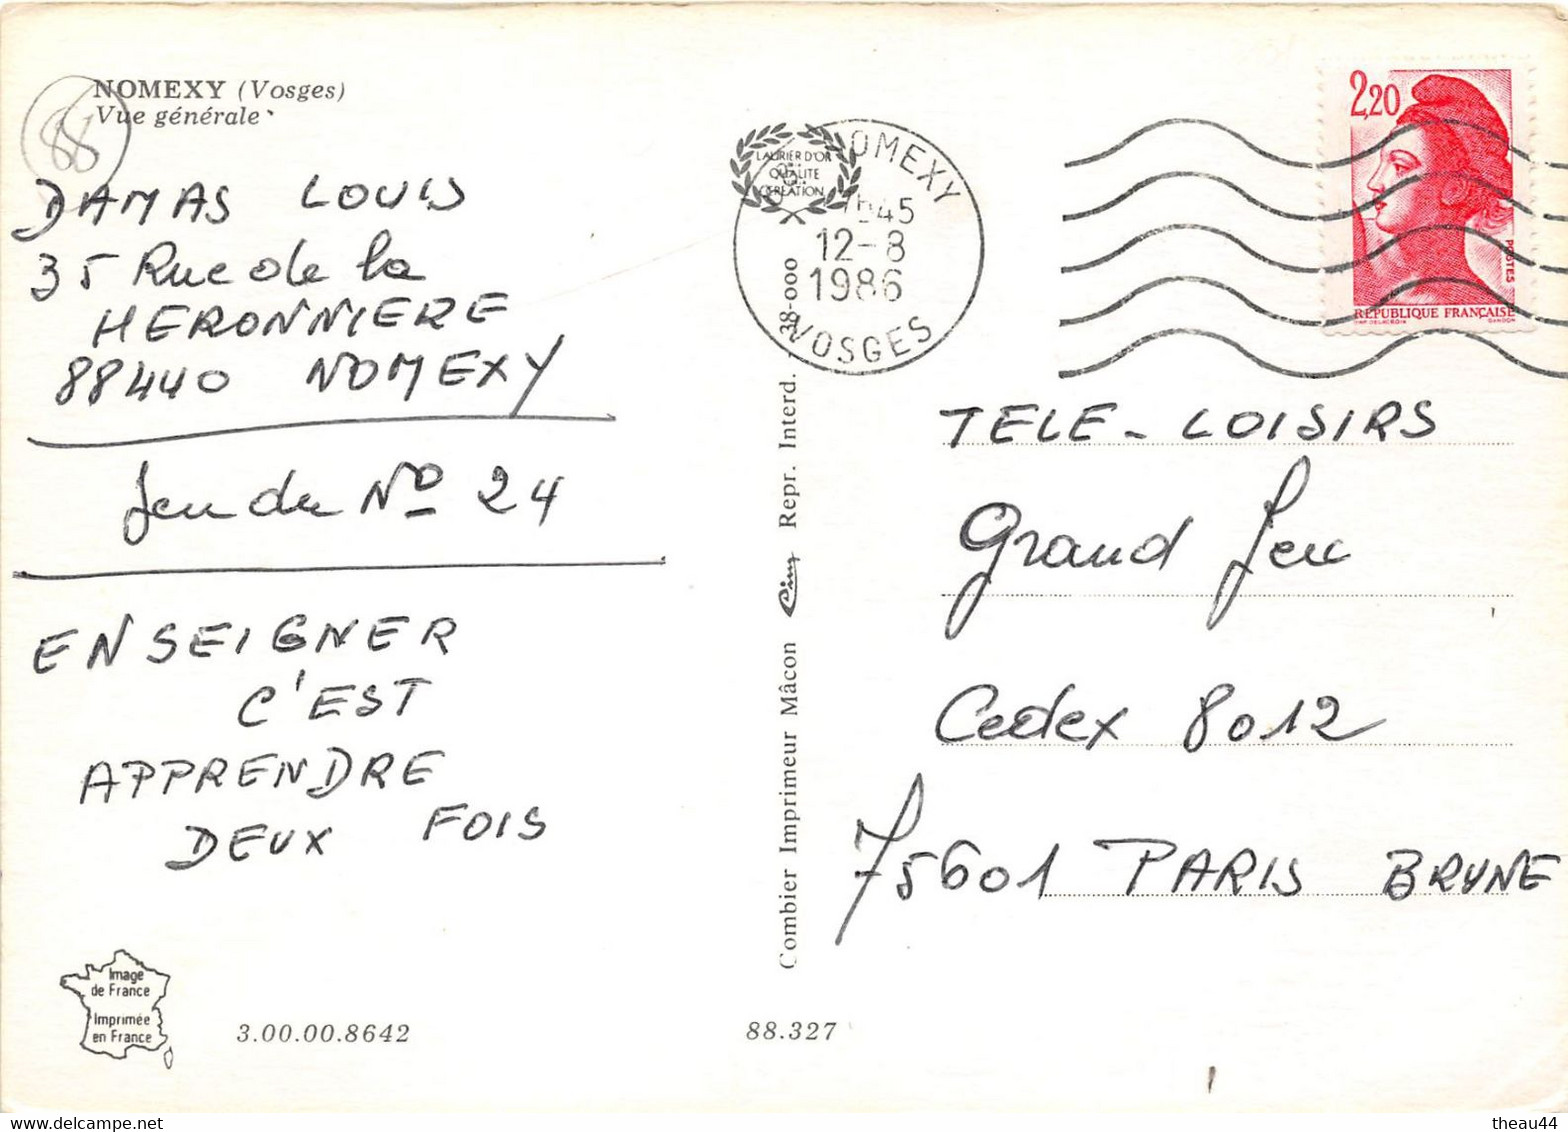 NOMEXY (Vosges)
Vue générale
88
DAMAS LOUIS
35 Rue de la
HERONNIERE
88440 NOMEXY
Jeu du Nº 24
ENSEIGNER
C'EST
APPRENDRE
DEUX FOIS
Image
de France
Imprimée
en France
3.00.00.8642
88.327
Combier Imprimeur Mâcon Cim Repr. Interd. 38-000
LAURIER D'OR
QUALITE
CREATION
NOMEXY
45
12-8
1986
VOSGES
2,20
POSTES
REPUBLIQUE FRANÇAISE
TELE-LOISIRS
Grand Jeu
Cedex 8012
75601 PARIS BRUNE
theau44